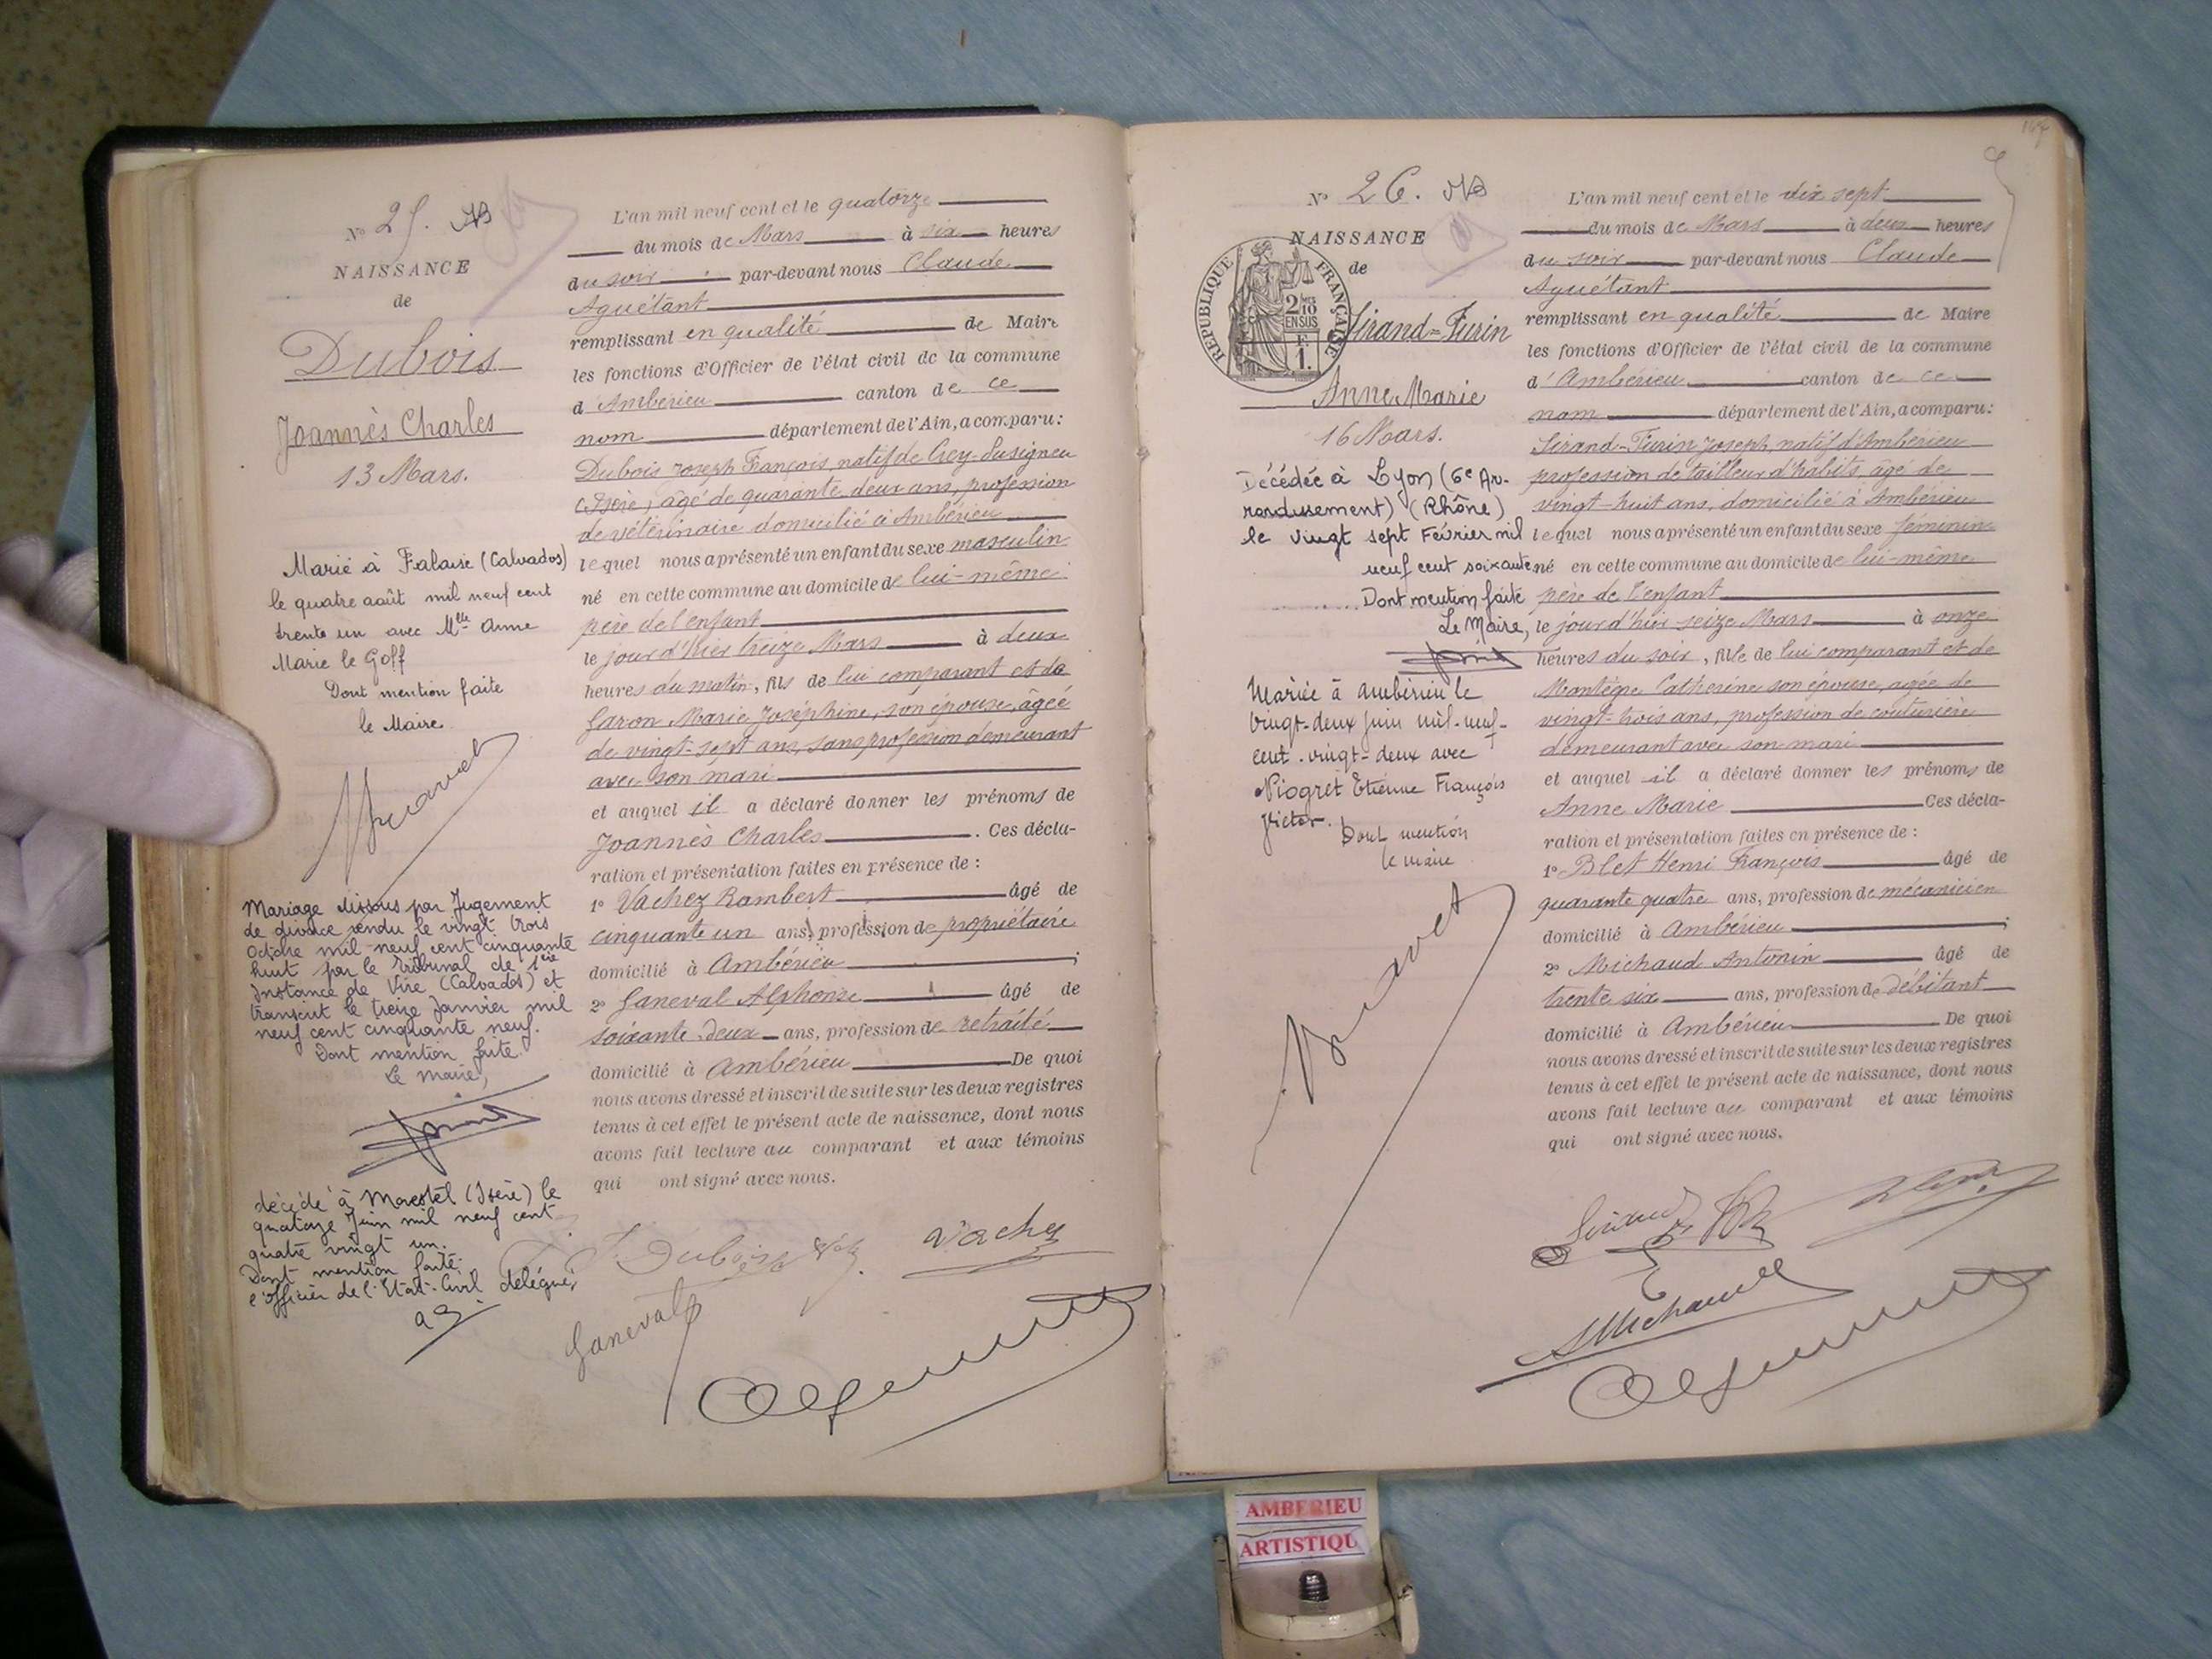 N° 25.
NAISSANCE
de
Dubois
Joannès Charles
13 Mars.
Marié à Falaise (Calvados)
le quatre août mil neuf cent
trente un avec Mlle Anne
Marie le Goff
Dont mention faite
le Maire
Mariage dissous par Jugement
de divorce rendu le vingt trois
Octobre mil neuf cent cinquante
huit par le Tribunal de 1ère
Instance de Vire (Calvados) et
transcrit le treize Janvier mil
neuf cent cinquante neuf.
Dont mention faite.
Le Maire,
décédé à Morestel (Isère) le
quatorze Juin mil neuf cent
quatre vingt un.
Dont mention faite.
l'officier de l'Etat-Civil délégué,
L'an mil neuf cent et le quatorze
du mois de Mars à six heures
du soir par-devant nous Claude
Aguétant
remplissant en qualité de Maire
les fonctions d'Officier de l'état civil de la commune
d'Ambérieu canton de ce
nom département de l'Ain, a comparu:
Dubois Joseph François, natif de Creys-Pusignieu
(Isère) âgé de quarante deux ans, profession
de vétérinaire domicilié à Ambérieu
lequel nous a présenté un enfant du sexe masculin
né en cette commune au domicile de lui-même
père de l'enfant
le jour d'hier treize Mars à deux
heures du matin, fils de lui comparant et de
Marie Joséphine, son épouse, âgée
de vingt-sept ans, sans profession demeurant
avec son mari
et auquel il a déclaré donner les prénoms de
Joannès Charles. Ces décla-
ration et présentation faites en présence de :
1° Vachez Rambert âgé de
cinquante un ans, profession de propriétaire
domicilié à Ambérieu ;
2° Ganeval Alphonse âgé de
soixante-deux ans, profession de retraité
domicilié à Ambérieu De quoi
nous avons dressé et inscrit de suite sur les deux registres
tenus à cet effet le présent acte de naissance, dont nous
avons fait lecture au comparant et aux témoins
qui ont signé avec nous.
J. Dubois Vachez
Ganeval
N° 26.
NAISSANCE
de
REPUBLIQUE FRANÇAISE
2/10
EN SUS
F.
1.
Sirand-Turin
Anne Marie
16 Mars.
Décédée à Lyon (6e Ar-
rondissement) (Rhône)
le vingt sept Février mil
neuf cent soixante
Dont mention faite
Le Maire,
Mariée à Ambérieu le
vingt-deux juin mil-neuf-
cent-vingt-deux avec
Niogret Etienne François
Victor.
Dont mention
le maire
L'an mil neuf cent et le dix sept
du mois de Mars à deux heures
du soir par-devant nous Claude
Aguétant
remplissant en qualité de Maire
les fonctions d'Officier de l'état civil de la commune
d'Ambérieu canton de ce
nom département de l'Ain, a comparu:
Sirand-Turin Joseph, natif d'Ambérieu
profession de tailleur d'habits, âgé de
vingt-huit ans, domicilié à Ambérieu
lequel nous a présenté un enfant du sexe féminin
né en cette commune au domicile de lui-même
père de l'enfant
le jour d'hier seize Mars à onze
heures du soir, fille de lui comparant et de
Catherine son épouse, agée de
vingt-trois ans, profession de couturière
demeurant avec son mari
et auquel il a déclaré donner les prénoms de
Anne Marie Ces décla-
ration et présentation faites en présence de :
1° Blet Henri François âgé de
quarante quatre ans, profession de mécanicien
domicilié à Ambérieu ;
2° Michaud Antonin âgé de
trente six ans, profession de débitant
domicilié à Ambérieu De quoi
nous avons dressé et inscrit de suite sur les deux registres
tenus à cet effet le présent acte de naissance, dont nous
avons fait lecture au comparant et aux témoins
qui ont signé avec nous.
Sirand
A Michaud
AMBERIEU
ARTISTIQU